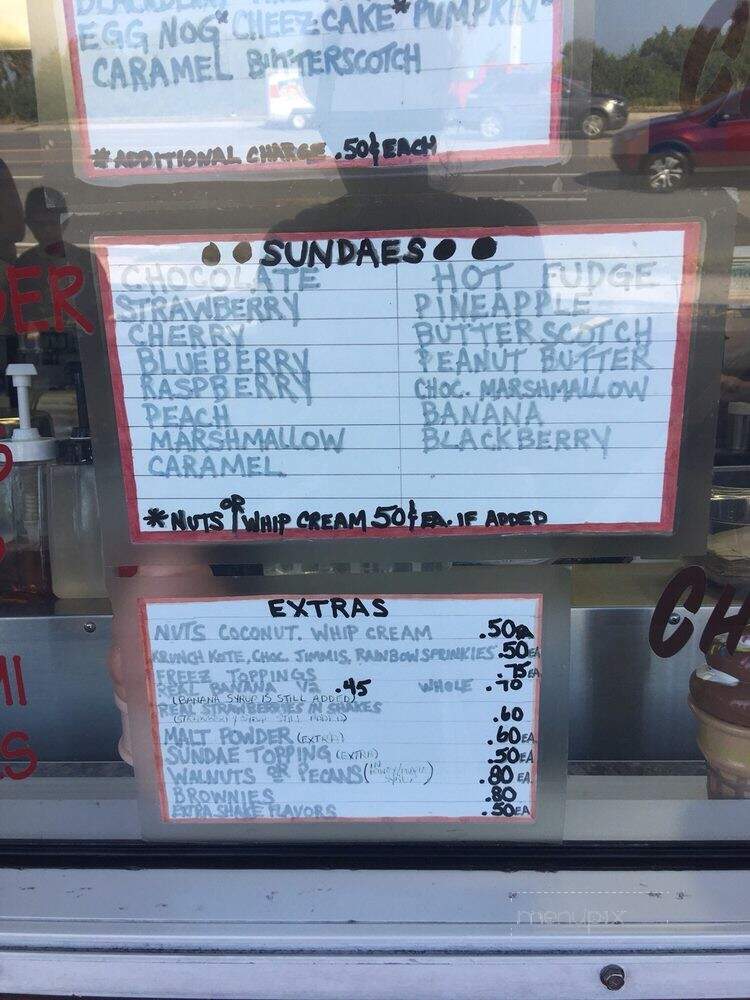 EGG NOG* CHEEZCAKE* PUMPKIN*
CARAMEL BUTTERSCOTCH
* ADDITIONAL CHARGE .50¢ EACH
SUNDAES
CHOCOLATE HOT FUDGE
STRAWBERRY PINEAPPLE
CHERRY BUTTERSCOTCH
BLUEBERRY PEANUT BUTTER
RASPBERRY CHOC. MARSHMALLOW
PEACH BANANA
MARSHMALLOW BLACKBERRY
CARAMEL
* NUTS OR WHIP CREAM 50¢ EA. IF ADDED
EXTRAS
NUTS COCONUT. WHIP CREAM .50EA
KRUNCH KOTE, CHOC. JIMMIS, RAINBOW SPRINKLES .50EA
FREEZ TOPPINGS .75EA
REAL BANANA ½ .45 WHOLE .70
(BANANA SYRUP IS STILL ADDED)
REAL STRAWBERRIES IN SHAKES .60
(STRAWBERRY SYRUP STILL ADDED)
MALT POWDER (EXTRA) .60EA
SUNDAE TOPPING (EXTRA) .50EA
WALNUTS OR PECANS .80 EA
BROWNIES .80
EXTRA SHAKE FLAVORS .50EA
ER
MI
S
CH
menupix